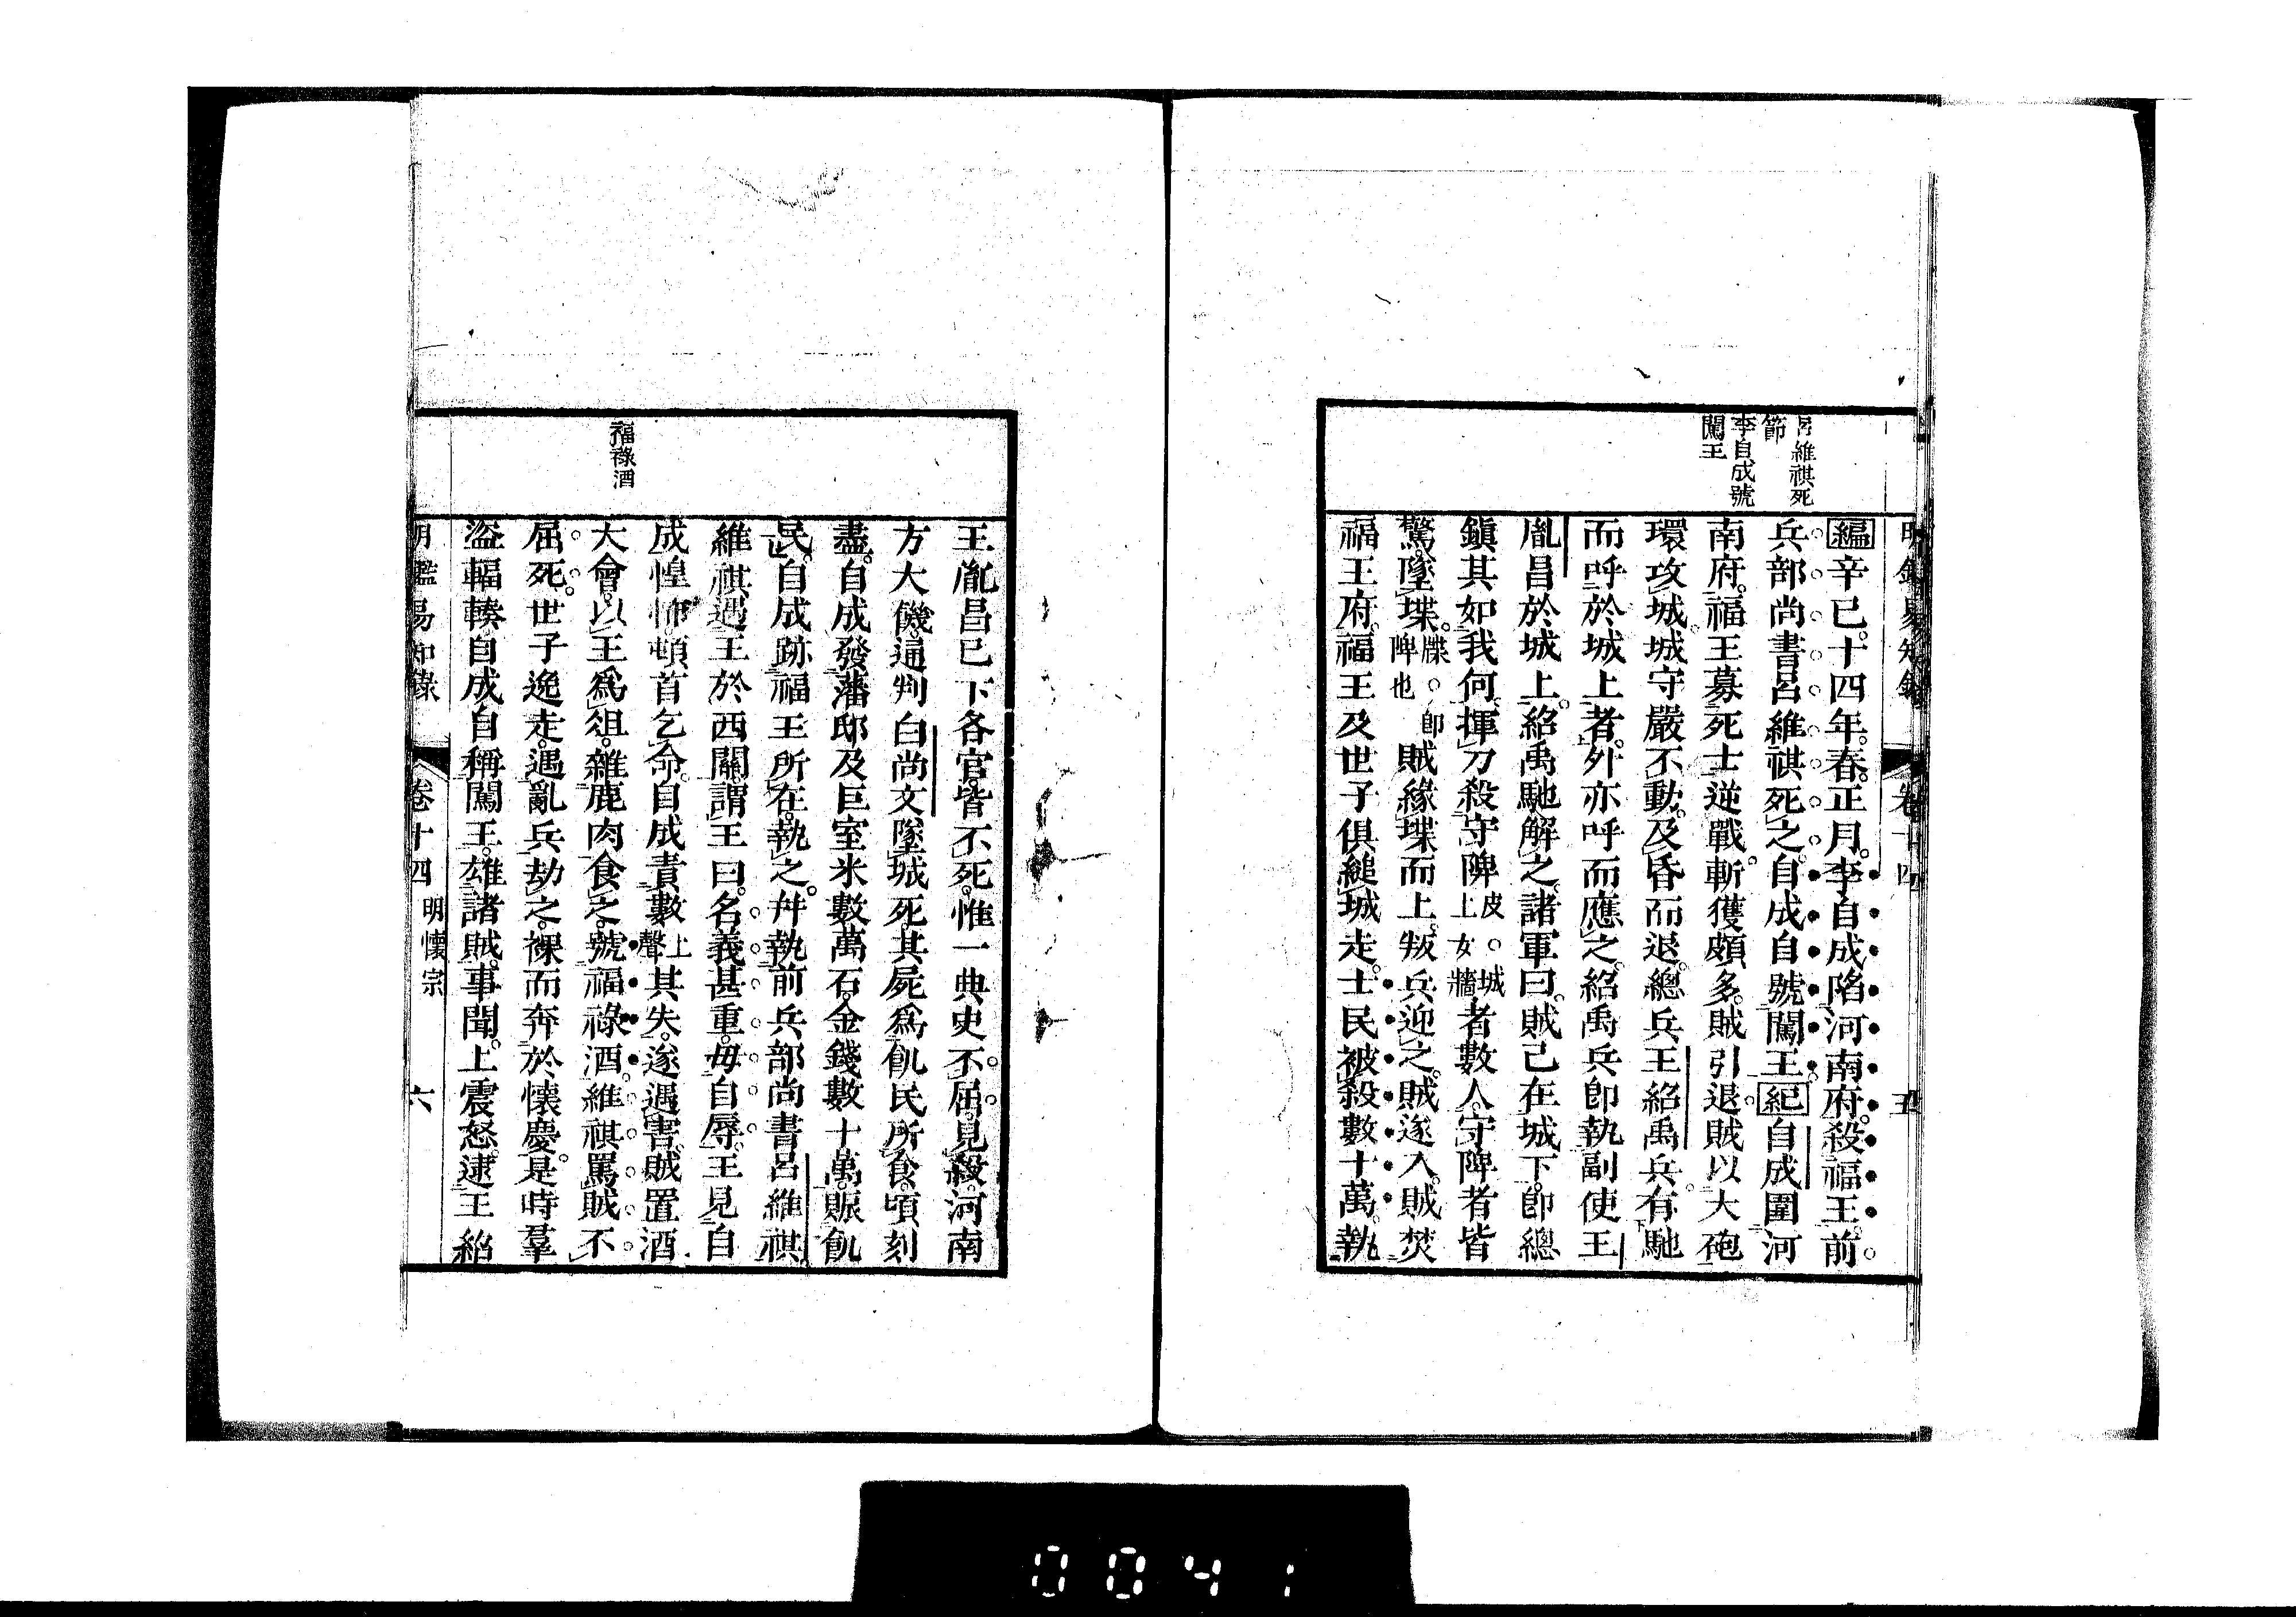 明鑑易知錄 卷十四 五
呂維祺死
節
李自成號
闖王
編辛巳。十四年。春。正月。李自成陷河南府。殺福王。前
兵部尚書呂維祺死之。自成自號闖王。紀自成圍河
南府。福王募死士逆戰。斬獲頗多。賊引退。賊以大砲
環攻城。城守嚴不動。及昏而退。總兵王紹禹兵。有馳
而呼於城上者。外亦呼而應之。紹禹兵卽執副使王
胤昌於城上。紹禹馳解之。諸軍曰。賊已在城下。卽總
鎭其如我何。揮刀殺守陴皮。城上女牆者數人。守陴者皆
驚。墜堞。牒。卽陴也賊緣堞而上。叛兵迎之。賊遂入。賊焚
福王府。福王及世子俱縋城走。士民被殺數十萬。執
王胤昌已下各官。皆不死。惟一典史不屈。見殺。河南
方大饑。通判白尚文墜城死。其屍爲飢民所食。頃刻
盡。自成發藩邸及巨室米數萬石。金錢數十萬。賑飢
民。自成跡福王所在。執之。幷執前兵部尚書呂維祺。
維祺遇王於西關。謂王曰。名義甚重。毋自辱。王見自
成惶怖。頓首乞命。自成責數上聲其失。遂遇害。賊置酒
大會。以王爲俎。雜鹿肉食之。號福祿酒。維祺罵賊不
屈。死。世子逸走。遇亂兵劫之。裸而奔於懷慶。是時羣
盜輻輳。自成自稱闖王。雄諸賊。事聞。上震怒。逮王紹
福祿酒
明鑑易知錄 卷十四 明懷宗 六
0041